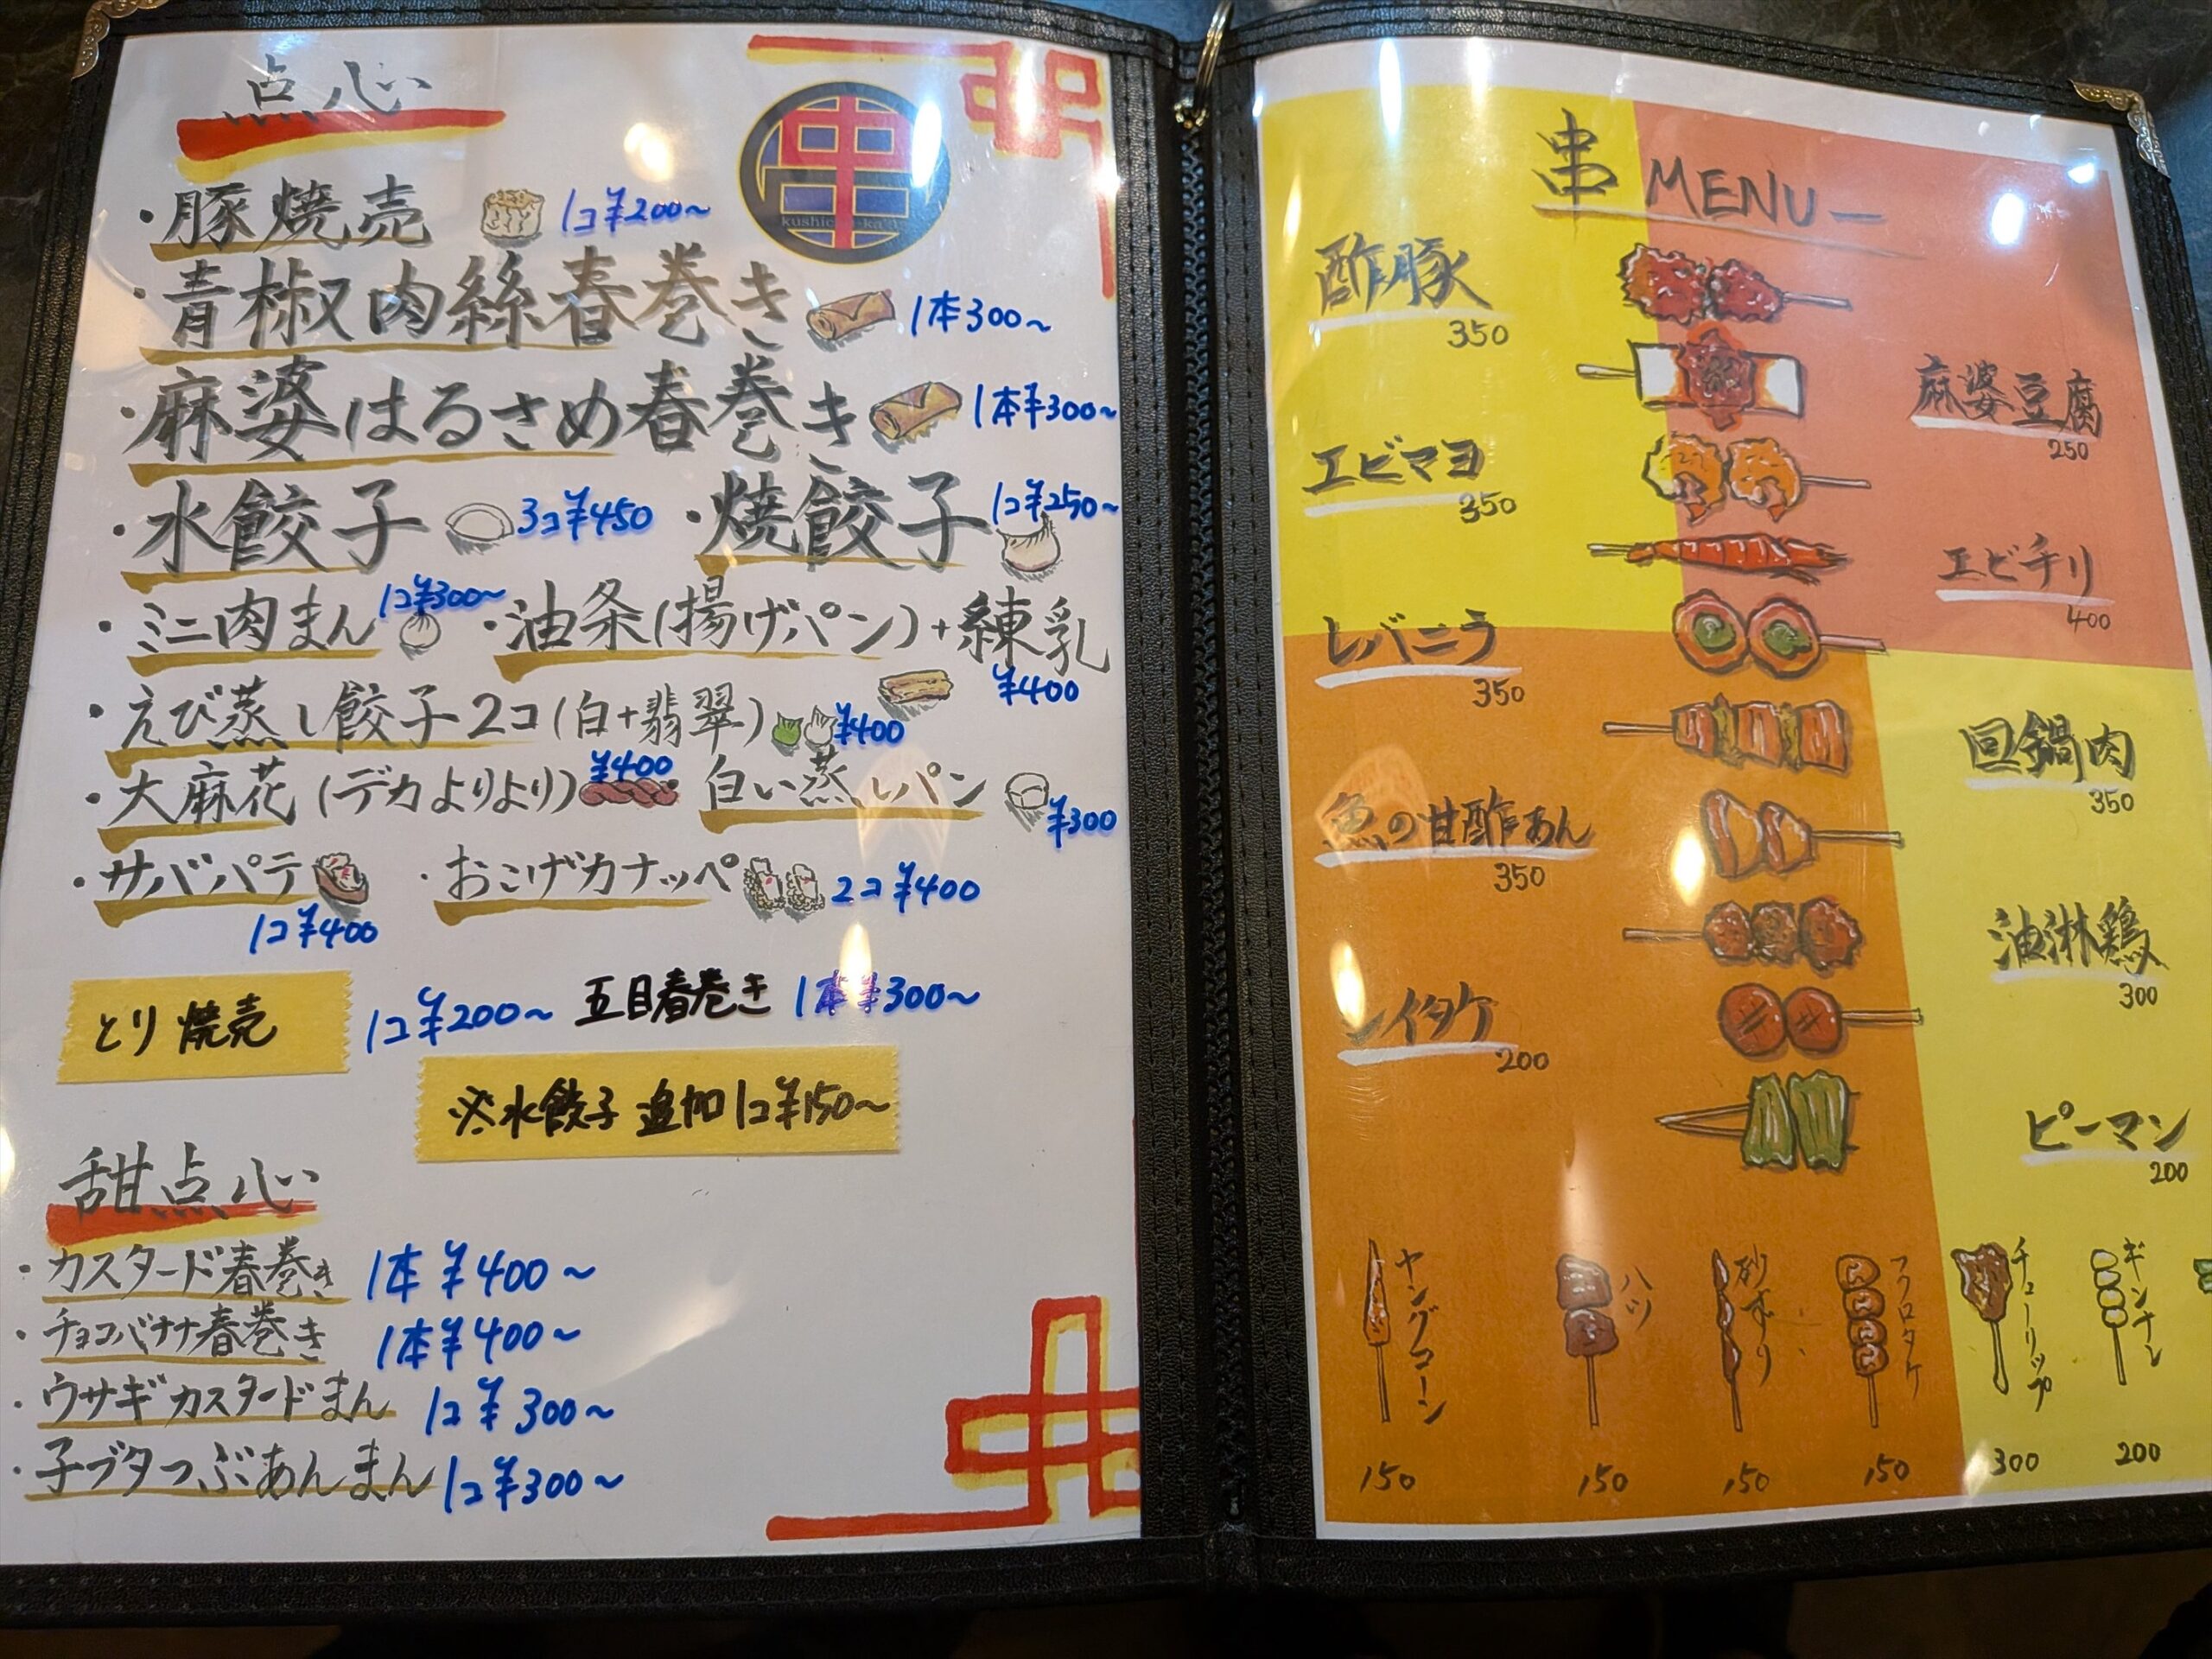 点心
串
・豚焼売 1コ¥200～
・青椒肉絲春巻き 1本300～
・麻婆はるさめ春巻き 1本¥300～
・水餃子 3コ¥450 ・焼餃子 1コ¥250～
・ミニ肉まん 1コ¥300～ ・油条(揚げパン)+練乳 ¥400
・えび蒸し餃子2コ(白+翡翠) ¥400
・大麻花(デカよりより) ¥400 白い蒸しパン ¥300
・サバパテ 1コ¥400 ・おこげカナッペ 2コ¥400
とり焼売 1コ¥200～ 五目春巻き 1本¥300～
※水餃子 追加1コ¥150～
甜点心
・カスタード春巻き 1本¥400～
・チョコバナナ春巻き 1本¥400～
・ウサギカスタードまん 1コ¥300～
・子ブタつぶあんまん 1コ¥300～
串 MENU
酢豚
350
麻婆豆腐
250
エビマヨ
350
エビチリ
400
レバニラ
350
回鍋肉
350
魚の甘酢あん
350
油淋鶏
300
シイタケ
200
ピーマン
200
ヤングコーン
150
ハツ
150
砂ずり
150
フクロタケ
150
チューリップ
300
ギンナン
200